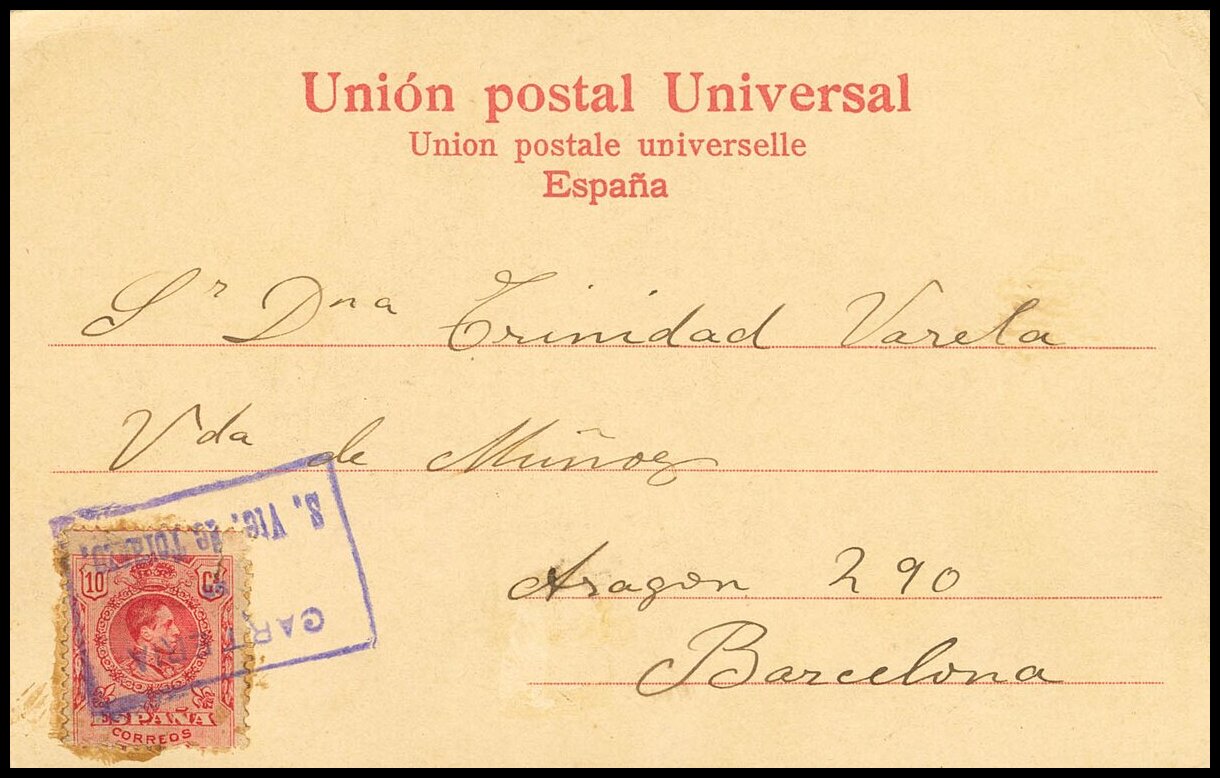 Unión postal Universal
Union postale universelle
España
Sr Dna Trinidad Varela
Vda de Muñoz
Aragon 290
Barcelona
CARTERIA
S. Vte. de Toranzo.
10 Cs
ESPAÑA
CORREOS